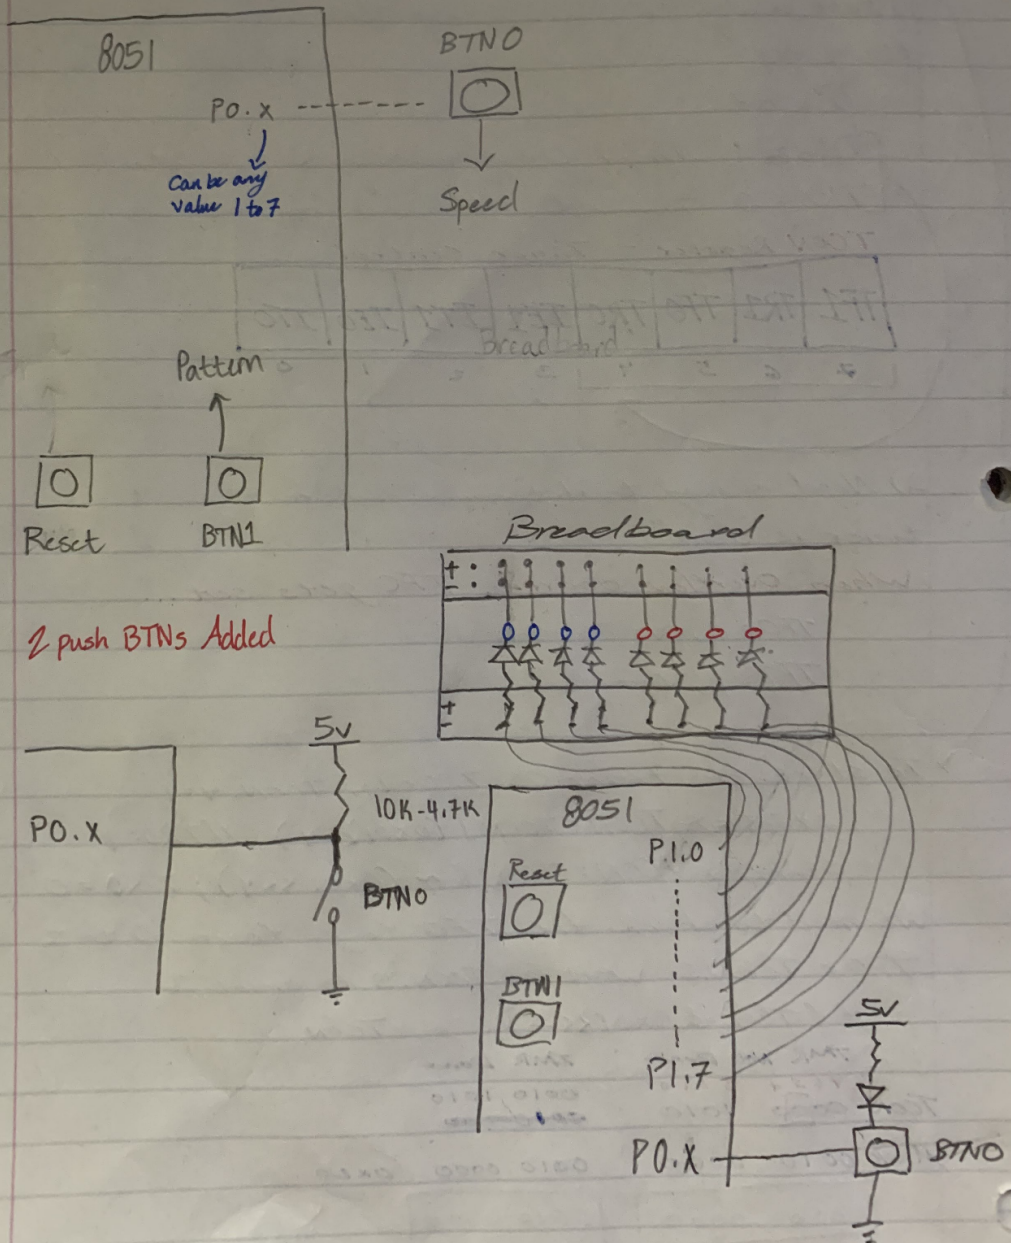 8051
BTN0
P0.x
Can be any
value 1 to 7
Speed
Breadboard
Pattern
Reset
BTN1
Breadboard
+ :
- :
2 push BTNs Added
+
-
5v
10K-4.7K
P0.X
BTN0
8051
P.1.0
Reset
BTN1
5v
P1.7
P0.X
BTN0